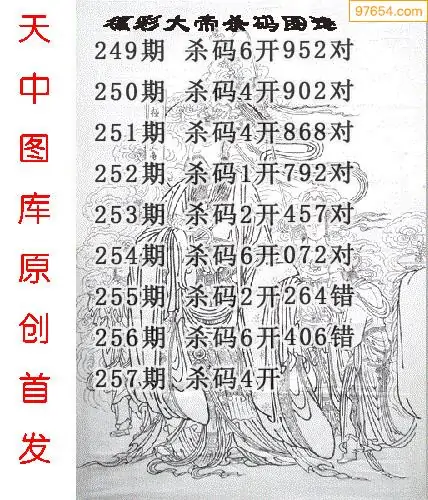 97654.com
福彩大帝杀码图迷
249期 杀码6开952对
250期 杀码4开902对
251期 杀码4开868对
252期 杀码1开792对
253期 杀码2开457对
254期 杀码6开072对
255期 杀码2开264错
256期 杀码6开406错
257期 杀码4开
天中图库原创首发